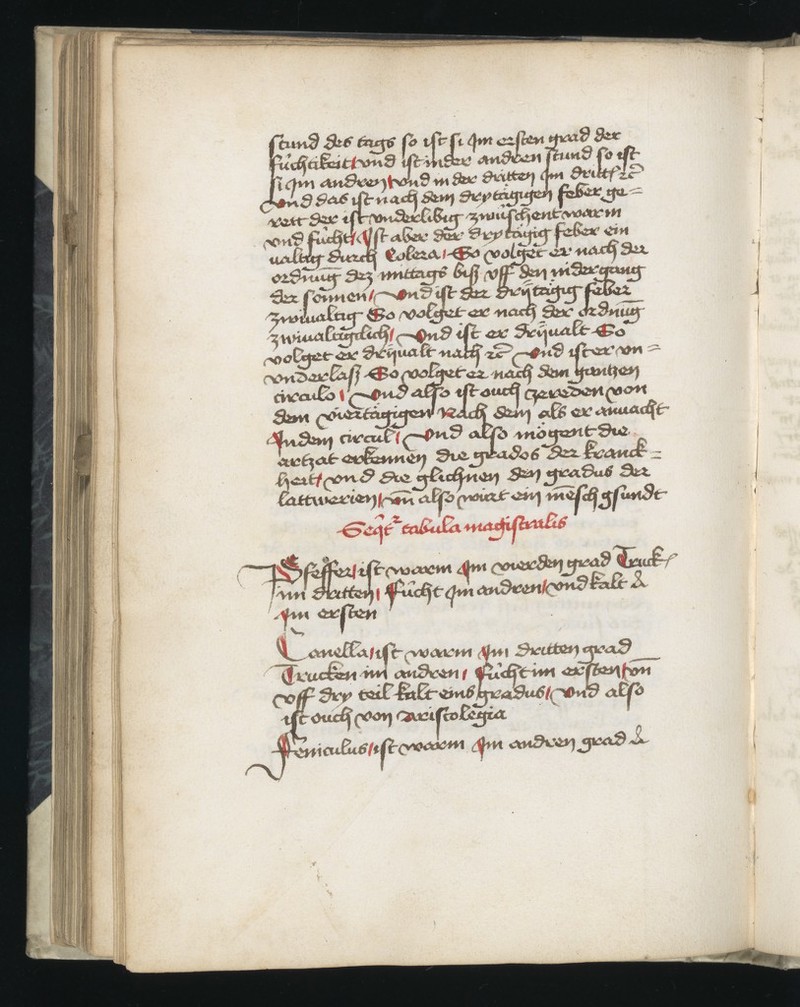 stund des tags so ist si Jm ersten grad der
fůchtikeit / vnd ist in der andren stund so ist
si Jm andren / vnd in der dritten Jm dritt ꝛc̄
Vnd das ist nach dem drytägigen feber ge=
rett der ist vnderlibig zwüschent warm
vnd fücht / Jst aber der drytägig feber ein
ualtig durch Colera / So volget er nach der
ordnūg dez mittags biß vff den nidergang
der sonnen / Vnd ist der drÿtägig feber
zwiualtig So volget er nach der ordnūg
zwiualtigclich / Vnd ist er drÿualt So
volget er drÿualt nach ꝛc̄ Vnd ist er vn=
vnderlaß So volget er nach dem gantzen
circulo / Vnd also ist ouch zereden von
dem viertägigen Nach dem als er anuacht
Jn dem circul / Vnd also mögent die
artzat erkennen die grados der kranck=
heit / vnd die glichnen den gradus der
lattwerien / vn̄ also wirt ein mēsch gsundt
Seqt͛ tabula magistralis
Pfeffer / ist warm Jm vierden grad Truck
im dritten / Fücht Jm andren / vnd kalt
Jm ersten
Canella / ist warm Jm dritten grad
Trucken im andren / fücht im ersten / vn̄
vff dry teil kalt eins gradus / Vnd also
ist ouch von Aristolegia
Feniculus / ist warm Jm andren grad